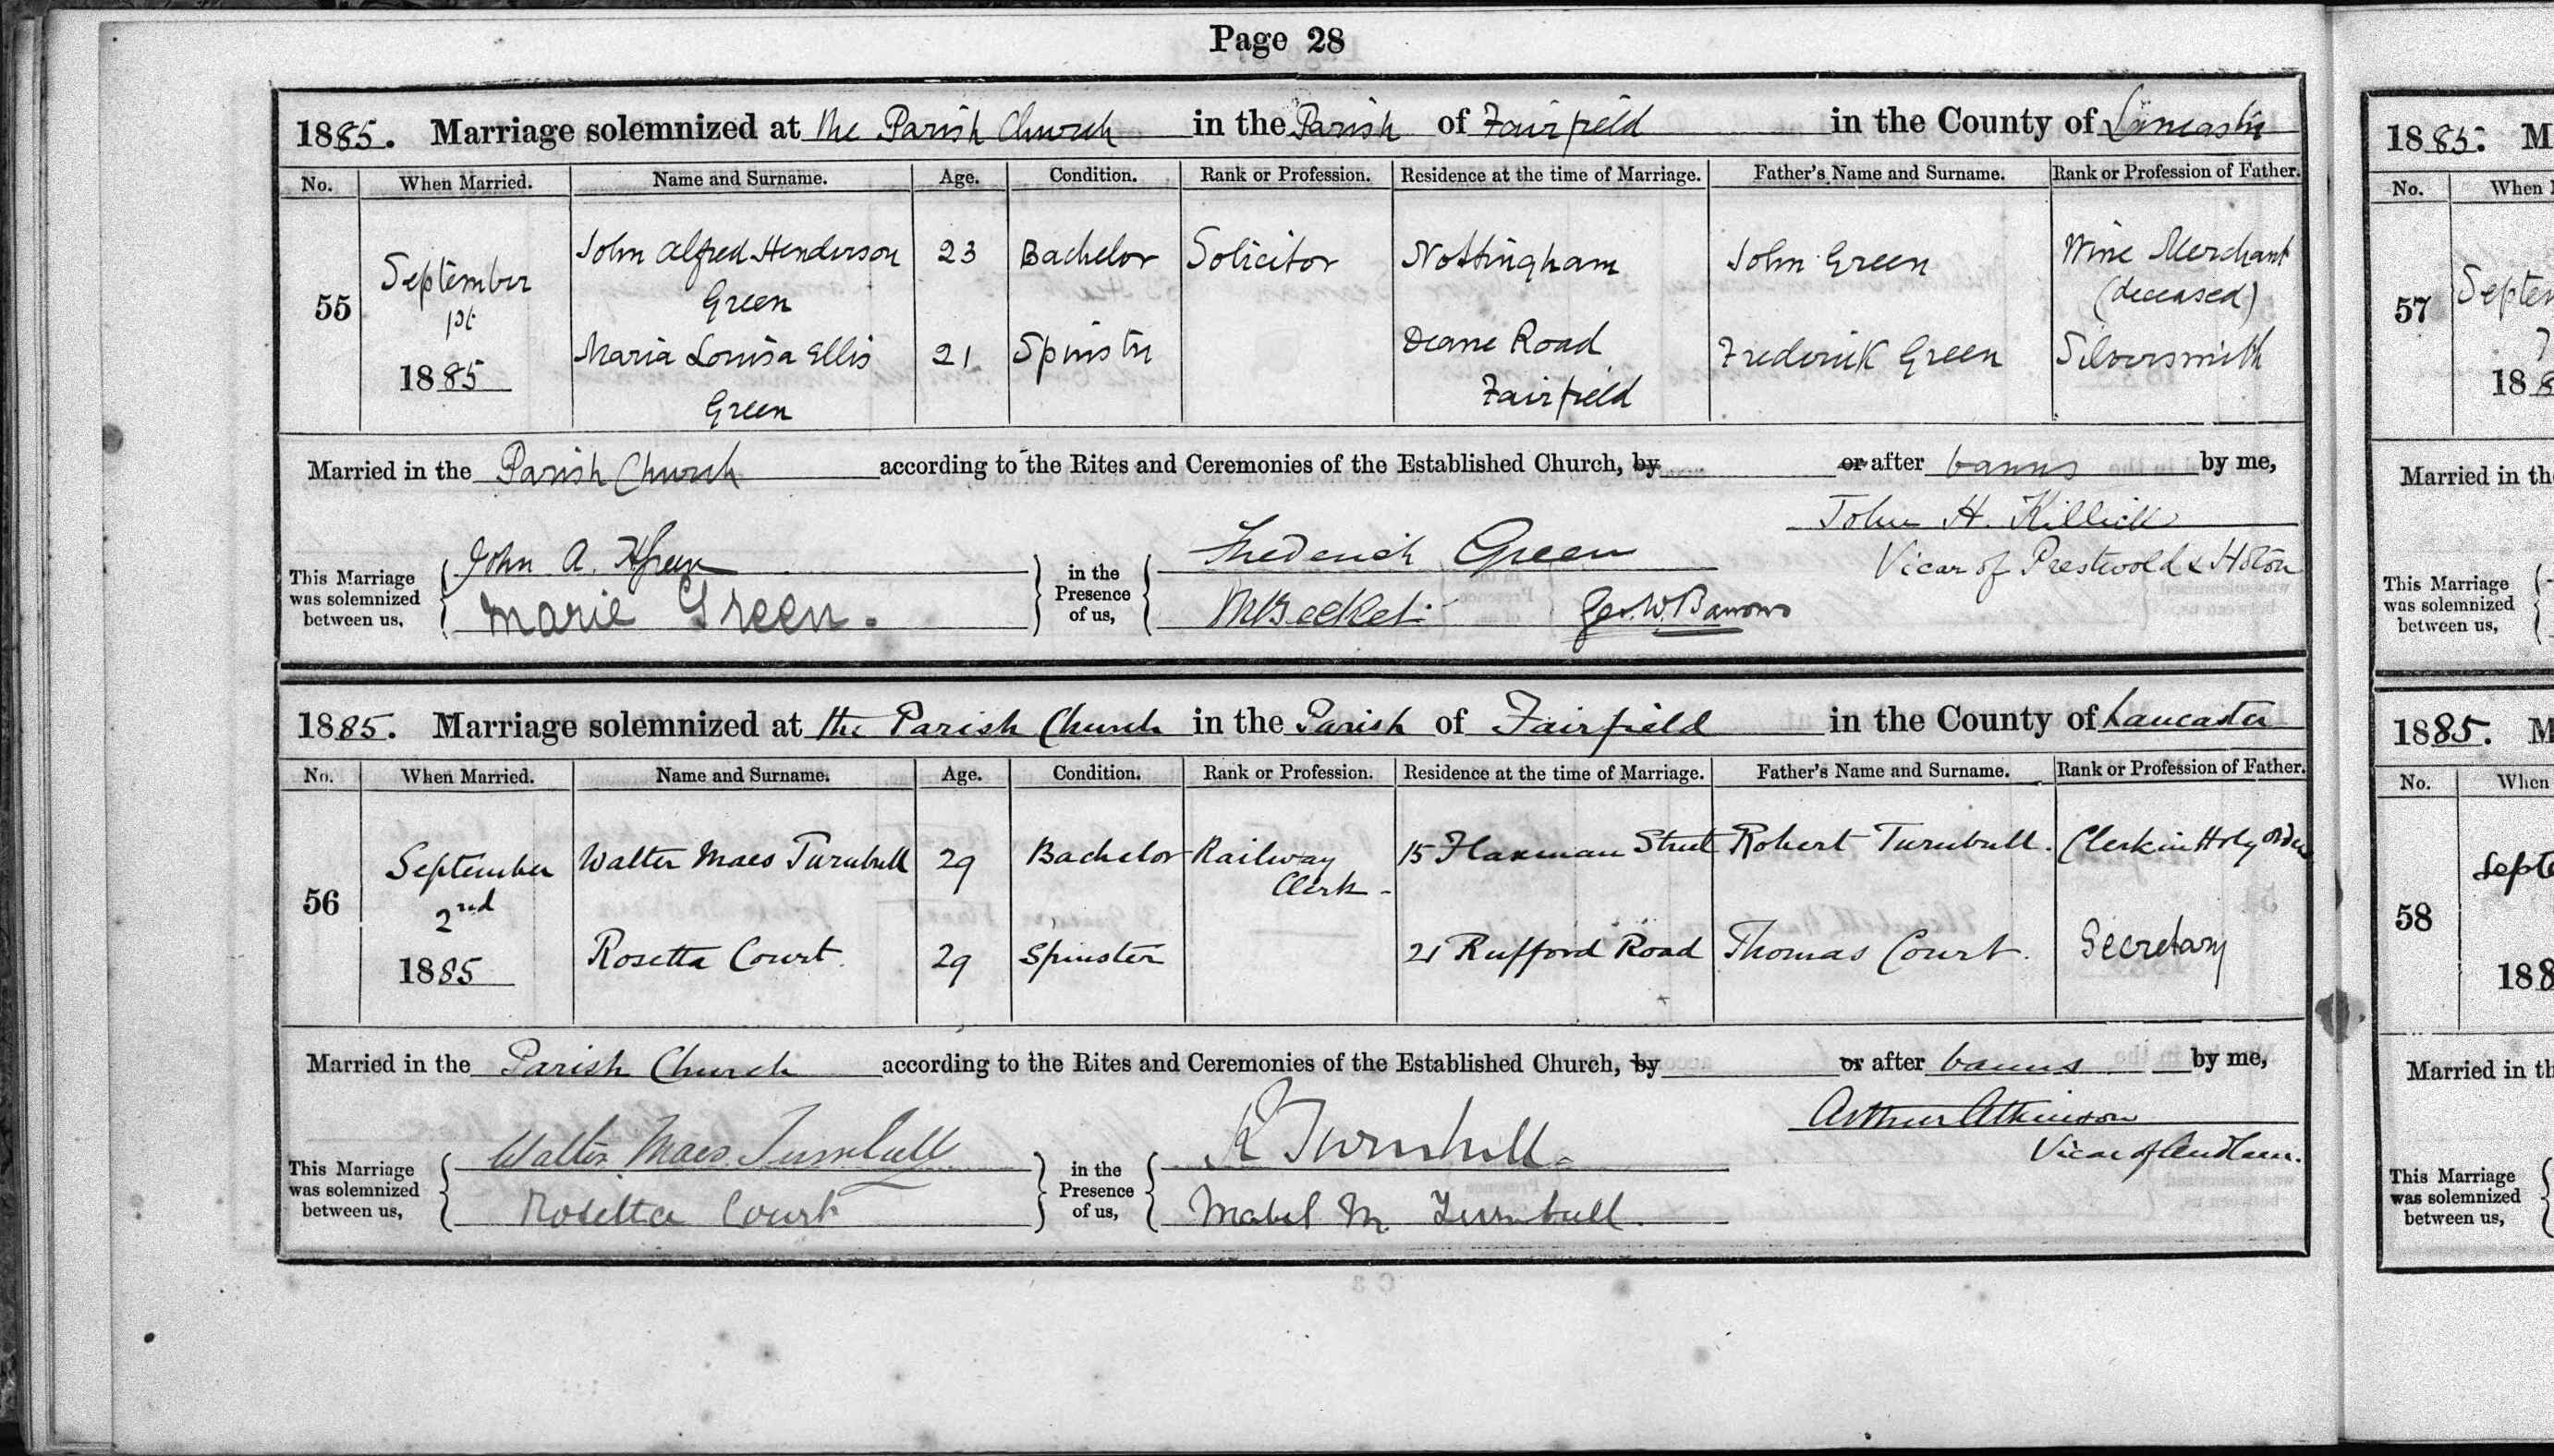 Page 28
1885. Marriage solemnized at the Parish Church in the Parish of Fairfield in the County of Lancaster
No. When Married. Name and Surname. Age. Condition. Rank or Profession. Residence at the time of Marriage. Father's Name and Surname. Rank or Profession of Father.
55 September 1st 1885
John Alfred Henderson Green 23 Bachelor Solicitor Nottingham John Green Wine Merchant (deceased)
Maria Louisa Ellis Green 21 Spinster Deane Road Fairfield Frederick Green Silversmith
Married in the Parish Church according to the Rites and Ceremonies of the Established Church, by or after banns by me,
John H. Killick
Vicar of Prestwold & Hoton
This Marriage was solemnized between us,
John A. H Green
Marie Green.
in the Presence of us,
Frederick Green
M Becket
Geo. W. Barrows
1885. Marriage solemnized at the Parish Church in the Parish of Fairfield in the County of Lancaster
No. When Married. Name and Surname. Age. Condition. Rank or Profession. Residence at the time of Marriage. Father's Name and Surname. Rank or Profession of Father.
56 September 2nd 1885
Walter Maes Turnbull 29 Bachelor Railway Clerk - 15 Flaxman Street Robert Turnbull. Clerk in Holy orders
Rosetta Court. 29 Spinster 21 Rufford Road Thomas Court. Secretary
Married in the Parish Church according to the Rites and Ceremonies of the Established Church, by or after banns by me,
Arthur Atkinson
Vicar of Audlem.
This Marriage was solemnized between us,
Walter Maes Turnbull
Rosetta Court
in the Presence of us,
R Turnbull.
Mabel M. Turnbull.
1885. M
No. When
57 Septem
188
Married in the
This Marriage was solemnized between us,
1885. M
No. When
58 Septe
188
Married in th
This Marriage was solemnized between us,